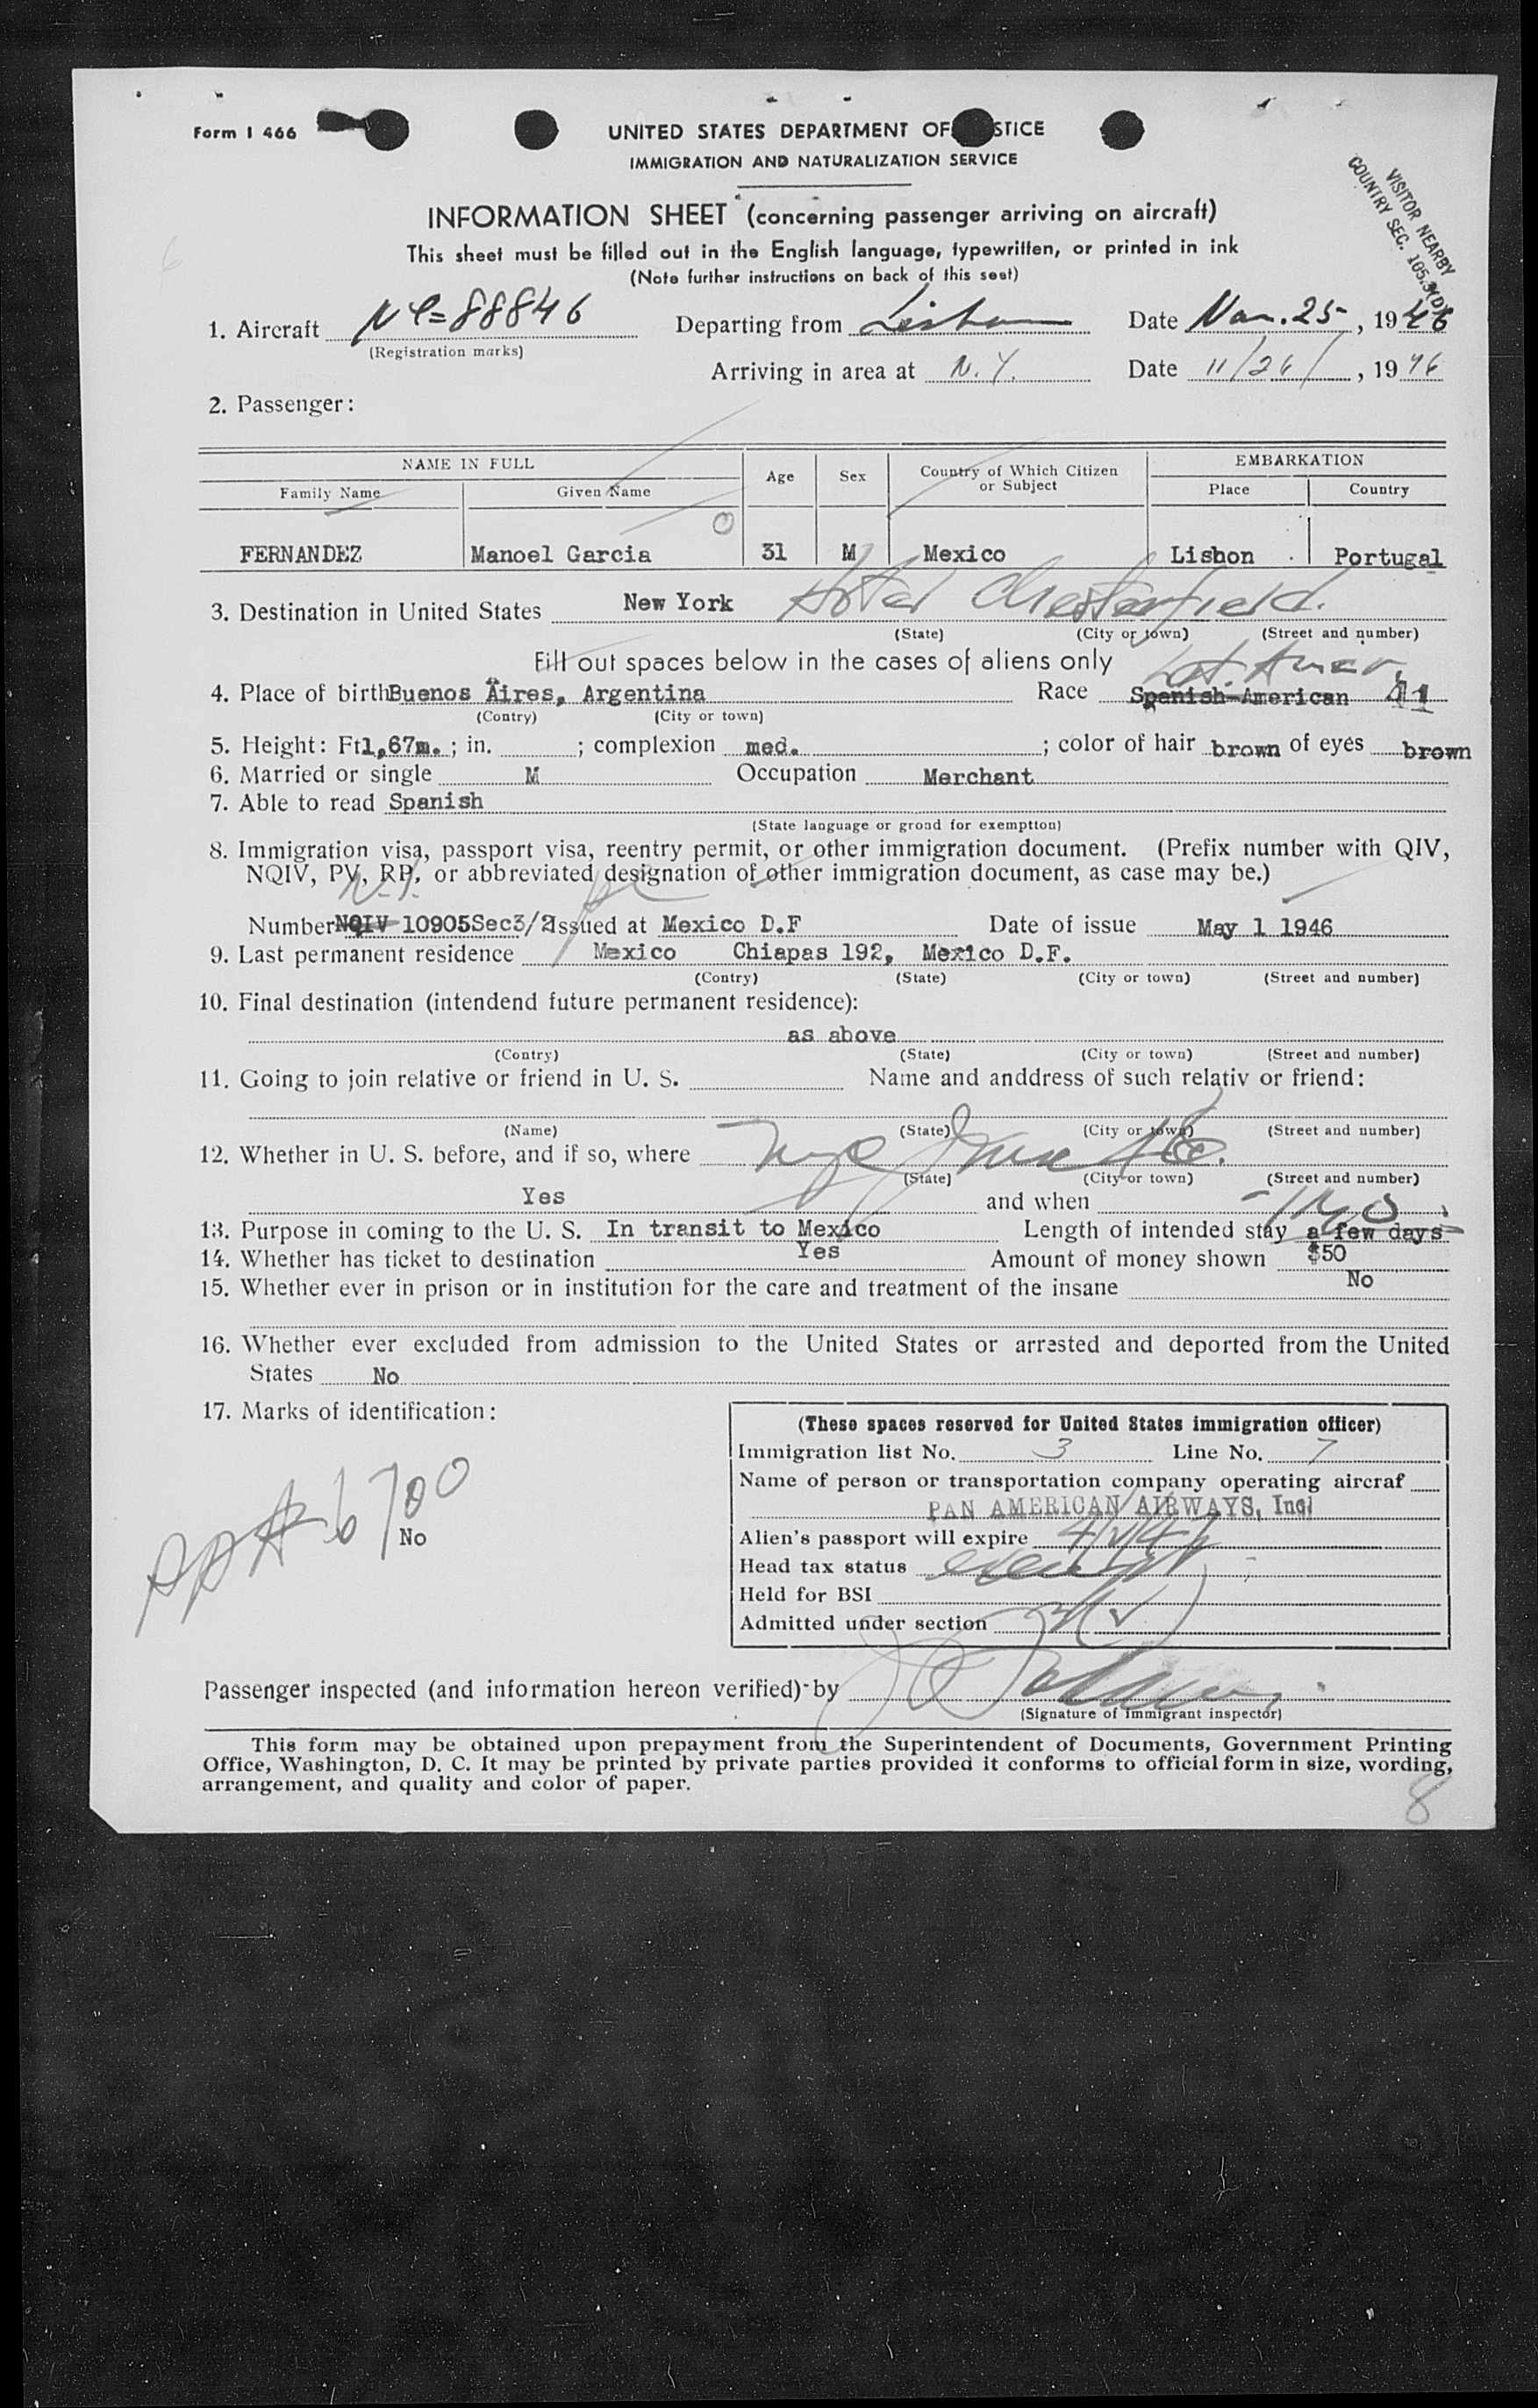 Form I 466
UNITED STATES DEPARTMENT OF STICE
IMMIGRATION AND NATURALIZATION SERVICE
VISITOR NEARBY
COUNTRY SEC. 105.3(D)
INFORMATION SHEET (concerning passenger arriving on aircraft)
This sheet must be filled out in the English language, typewritten, or printed in ink
(Note further instructions on back of this seet)
1. Aircraft NC=88846 Departing from Lisbon Date Nov. 25, 1946
(Registration marks)
Arriving in area at N.Y. Date 11/26/, 1946
2. Passenger:
NAME IN FULL Age Sex Country of Which Citizen or Subject EMBARKATION
Family Name Given Name Place Country
FERNANDEZ Manoel Garcia 31 M Mexico Lisbon Portugal
3. Destination in United States New York Hotel Chesterfield.
(State) (City or town) (Street and number)
Fill out spaces below in the cases of aliens only Lat. Amer.
4. Place of birth Buenos Aires, Argentina Race Spanish-American
(Contry) (City or town)
5. Height: Ft 1,67m. ; in. ; complexion med. ; color of hair brown of eyes brown
6. Married or single M Occupation Merchant
7. Able to read Spanish
(State language or grond for exemption)
8. Immigration visa, passport visa, reentry permit, or other immigration document. (Prefix number with QIV,
NQIV, PV, RP, or abbreviated designation of other immigration document, as case may be.)
Number NQIV 10905 Sec3/2 Issued at Mexico D.F Date of issue May 1 1946
9. Last permanent residence Mexico Chiapas 192, Mexico D.F.
(Contry) (State) (City or town) (Street and number)
10. Final destination (intendend future permanent residence):
as above
(Contry) (State) (City or town) (Street and number)
11. Going to join relative or friend in U. S. Name and anddress of such relativ or friend:
(Name) (State) (City or town) (Street and number)
12. Whether in U. S. before, and if so, where nyc June
(State) (City or town) (Street and number)
Yes and when
13. Purpose in coming to the U. S. In transit to Mexico Length of intended stay a few days
14. Whether has ticket to destination Yes Amount of money shown $50
15. Whether ever in prison or in institution for the care and treatment of the insane No
16. Whether ever excluded from admission to the United States or arrested and deported from the United
States No
17. Marks of identification:
No
(These spaces reserved for United States immigration officer)
Immigration list No. 3 Line No. 7
Name of person or transportation company operating aircraf
PAN AMERICAN AIRWAYS, Inc.
Alien's passport will expire
Head tax status
Held for BSI
Admitted under section
Passenger inspected (and information hereon verified) by
(Signature of immigrant inspector)
This form may be obtained upon prepayment from the Superintendent of Documents, Government Printing
Office, Washington, D. C. It may be printed by private parties provided it conforms to official form in size, wording,
arrangement, and quality and color of paper.
8